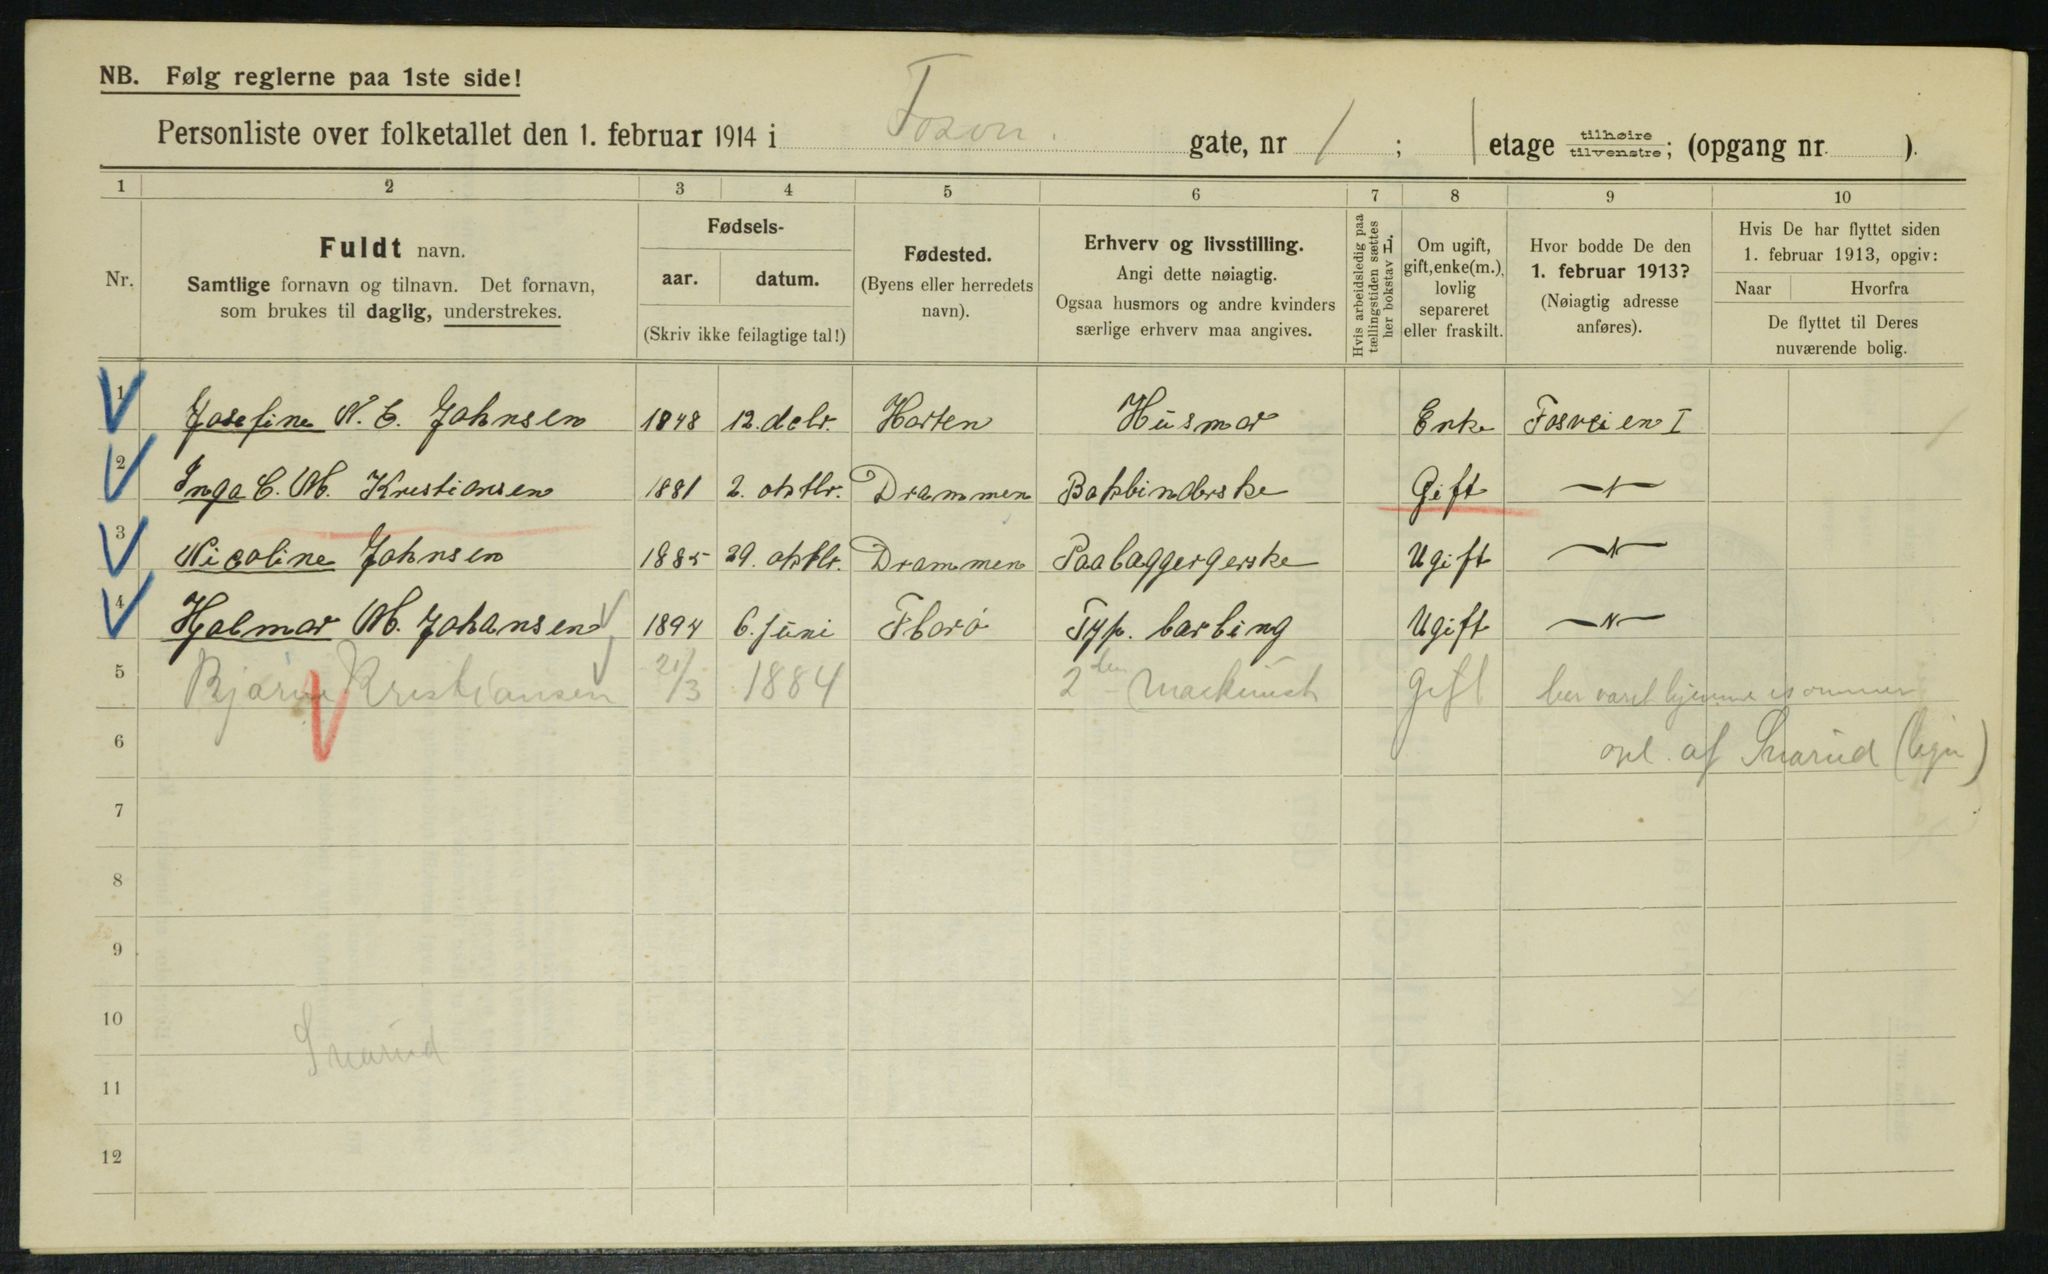 NB. Følg reglerne paa 1ste side!
Personliste over folketallet den 1. februar 1914 i Fosv. gate, nr 1 ; 1 etage tilhøire tilvenstre; (opgang nr. ).
1 2 3 4 5 6 7 8 9 10
Nr.
Fuldt navn.
Samtlige fornavn og tilnavn. Det fornavn,
som brukes til daglig, understrekes.
Fødsels-
aar. datum.
(Skriv ikke feilagtige tal!)
Fødested.
(Byens eller herredets
navn).
Erhverv og livsstilling.
Angi dette nøiagtig.
Ogsaa husmors og andre kvinders
særlige erhverv maa angives.
Hvis arbeidsledig paa
tællingstiden sættes
her bokstav L.
Om ugift,
gift, enke(m.),
lovlig
separeret
eller fraskilt.
Hvor bodde De den
1. februar 1913?
(Nøiagtig adresse
anføres).
Hvis De har flyttet siden
1. februar 1913, opgiv:
Naar Hvorfra
De flyttet til Deres
nuværende bolig.
1 Josefine N. C. Johnsen 1848 12. debr. Horten Husmor Enke Fosveien I
2 Inga C. M. Kristiansen 1881 2. oktbr. Drammen Bokbinderske Gift —〃—
3 Nicoline Johnsen 1885 29. oktbr. Drammen Paalæggergerske Ugift —〃—
4 Hjalmar M. Johansen 1894 6. juni Florø Typ. lærling Ugift —〃—
5 Bjarne Kristiansen 21/3 1884 2den Maskinist gift har været hjemme i sommer
6 opl. af Snarud
7
8
9
10
Snarud
11
12